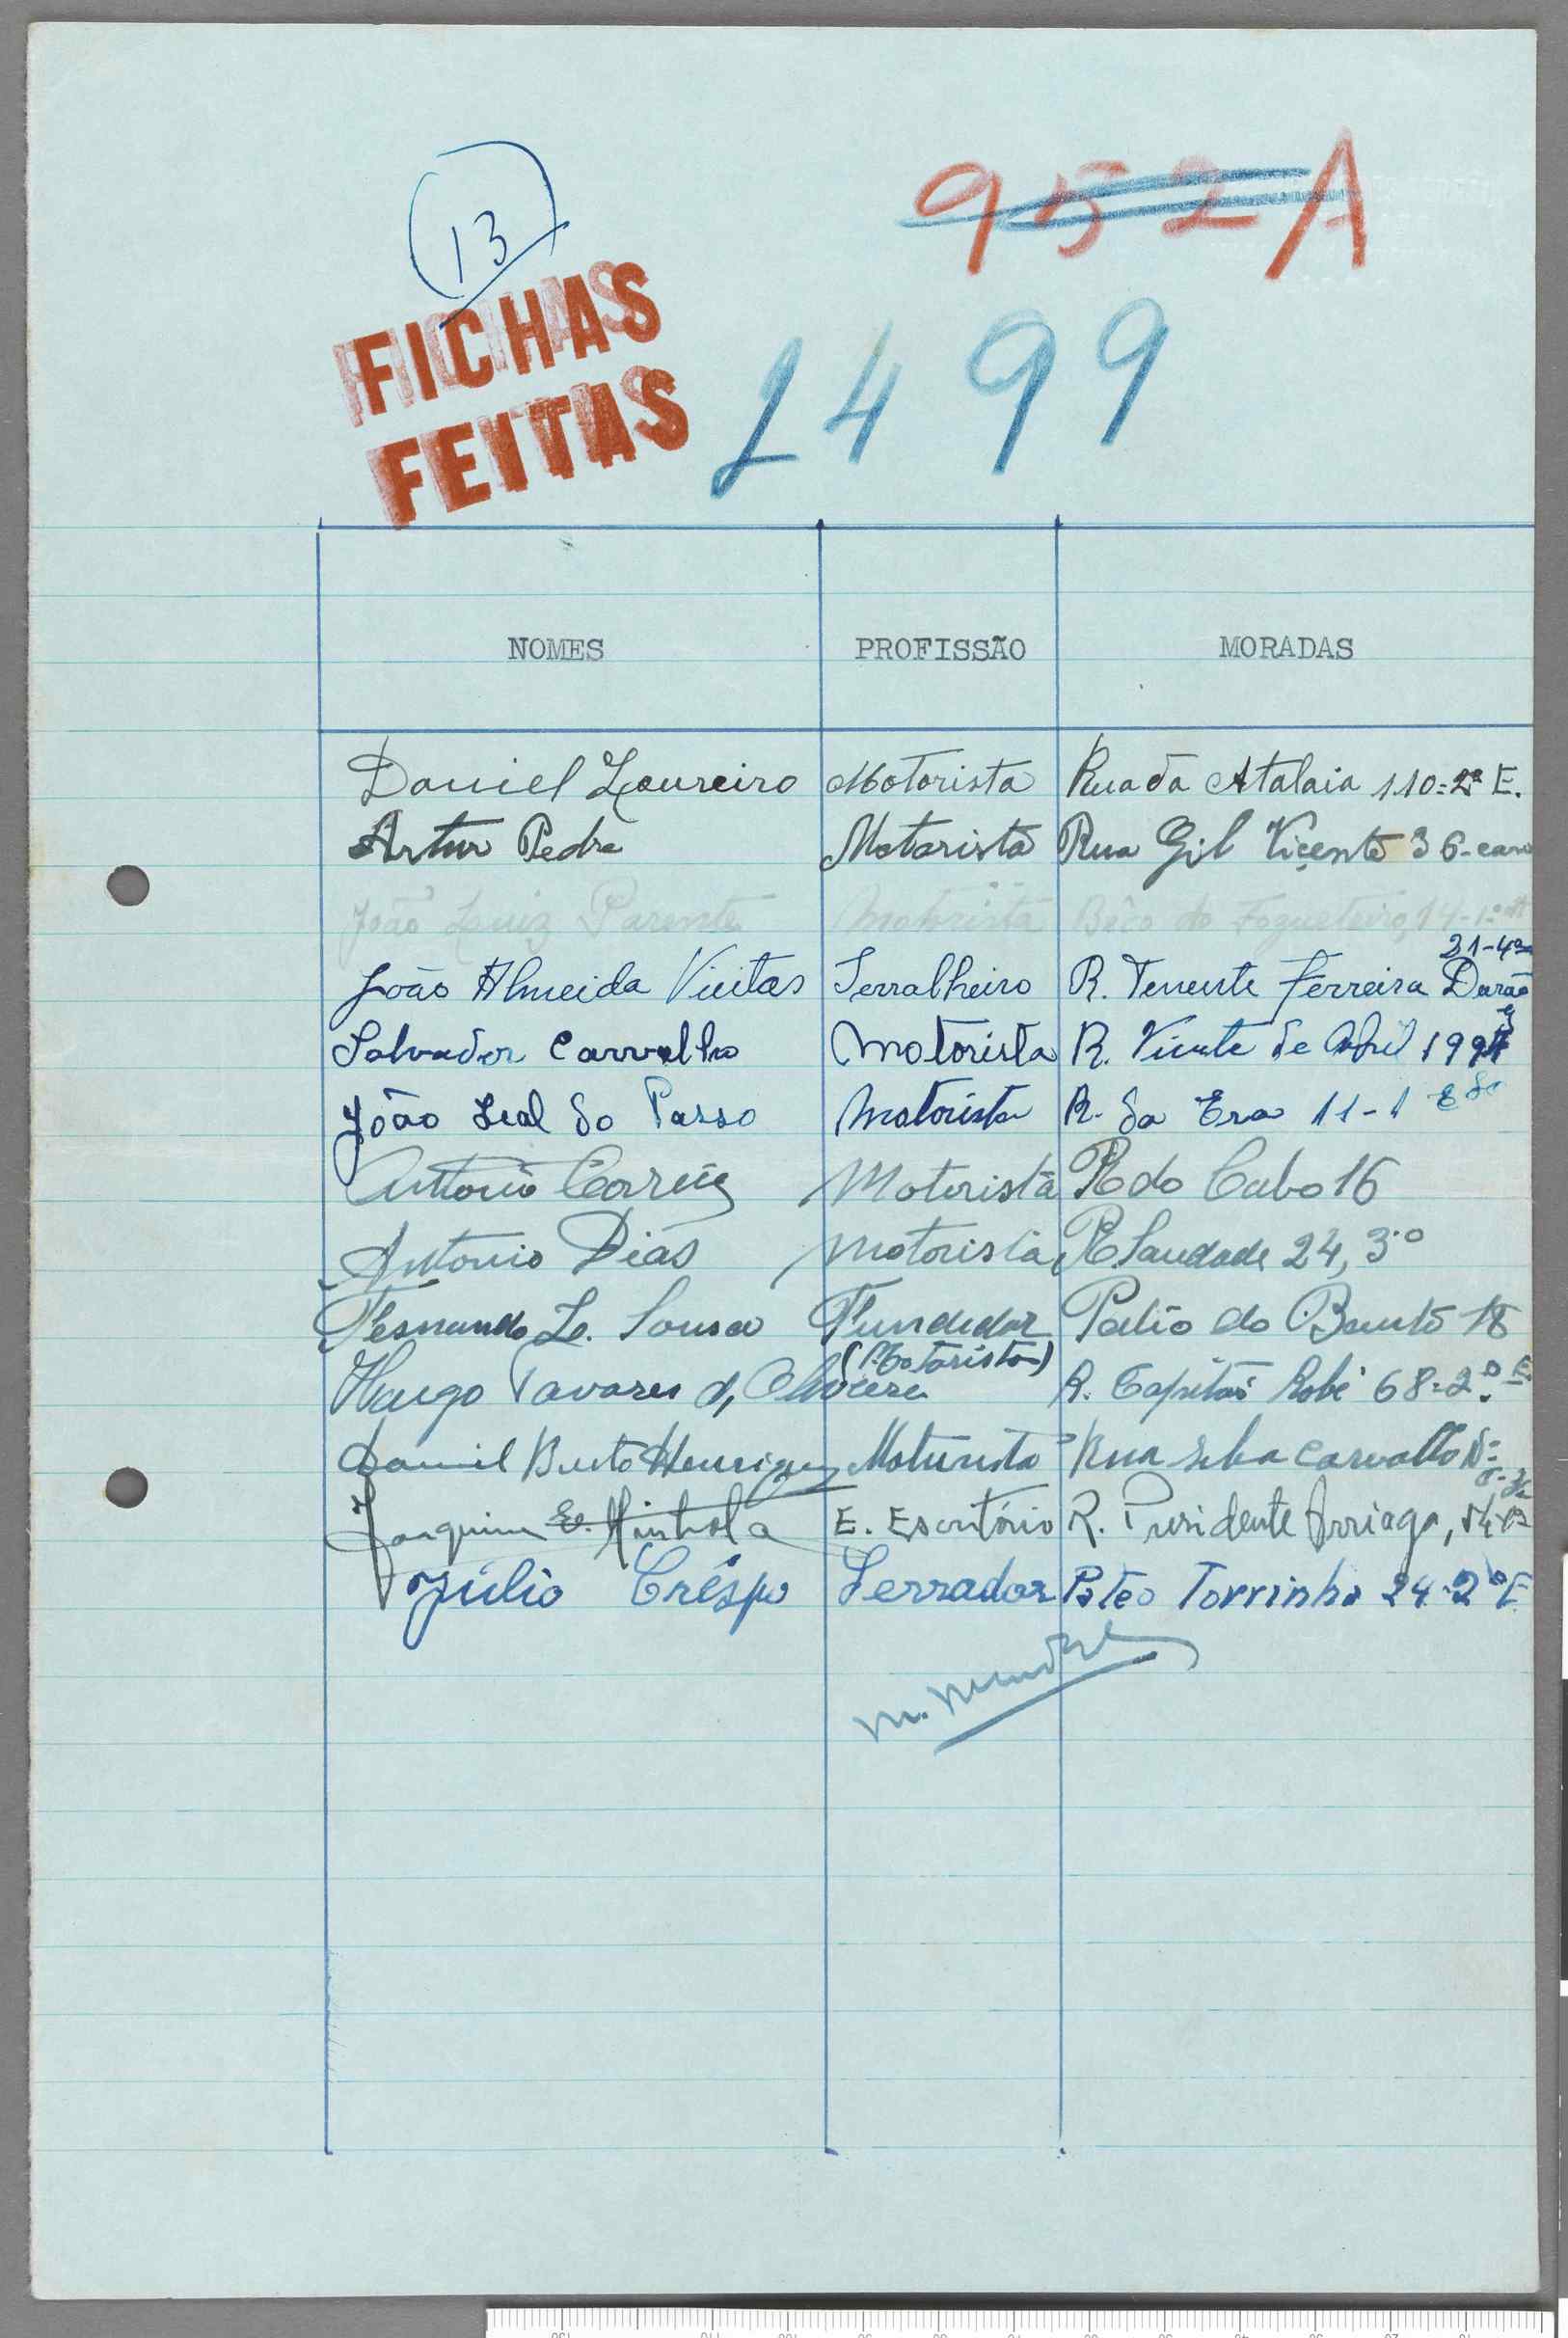 13
952A
FICHAS
FEITAS
1499
NOMES PROFISSÃO MORADAS
Daniel Loureiro Motorista Rua da Atalaia 110=2º E.
Artur Pedro Motorista Rua Gil Vicente 36-cave
João Luiz Parente Motorista Bêco do Fogueteiro, 14-1º
21-4º
João Almeida Vieitas Serralheiro R. Tenente Ferreira Durão
Salvador Carvalho Motorista R. Vinte de Abril
João Leal do Passo Motorista R. da Era 11-1 Edo
Antonio Motorista R do Cabo 16
Antonio Dias Motorista R Saudade 24, 3º
Fernando L. Sousa Fundidor Patio do 18
(Motorista)
Hugo Tavares d, Oliveira R. Capitão Robi 68=2º E.
Daniel Henriques Motorista Rua Silva Carvalho Nº
Joaquim E. E. Escritório R. Presidente Arriaga,
Júlio Crêspo Serrador Páteo Torrinha 24-2º E.